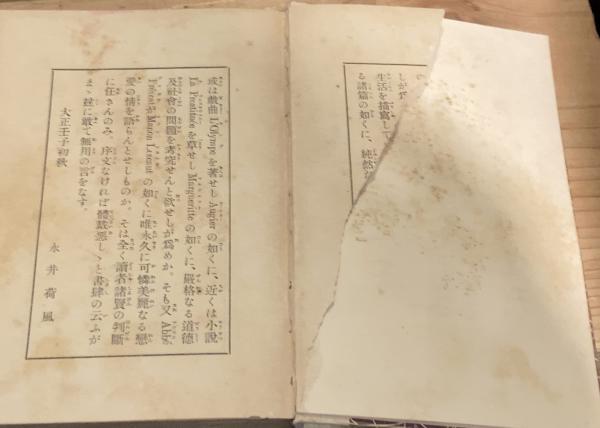 しが
生活を描寫して
る諸篇の如くに、純然
或は戯曲 L'Olympe を著せし Augier の如くに、近くは小説
La Prostituée を草せし Marguerite の如くに、嚴格なる道德
及社會の問題を考究せんと欲せしが爲めか。そも又 Abbé
Prévot が Manon Lescaut の如くに唯永久に可憐美麗なる戀
愛の情を語らんとせしものか。そは全く讀者諸賢の判斷
に任さんのみ。序文なければ體裁惡しゝと書肆の云ふが
まゝ玆に敢て無用の言をなす。
大正壬子初秋
永井荷風